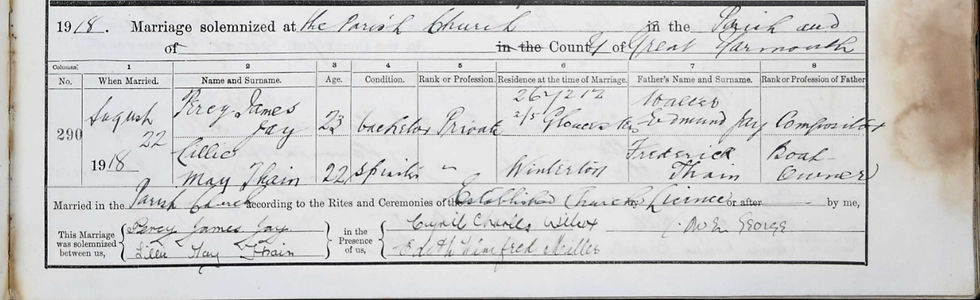 1918. Marriage solemnized at the Parish Church in the Parish and
of in the County of Great Yarmouth
Columns: 1 2 3 4 5 6 7 8
No. When Married. Name and Surname. Age. Condition. Rank or Profession. Residence at the time of Marriage. Father's Name and Surname. Rank or Profession of Father
290 August 22 1918 Percy James Jay 23 bachelor Private 267212 2/5 Gloucesters Edmund Jay Compositor
Lillie May Thain 22 Spinster " Winterton Frederick Thain Boat Owner
Married in the Parish Church according to the Rites and Ceremonies of the Established Church by Licence or after by me,
This Marriage was solemnized between us, Percy James Jay in the Presence of us, Cyril George
Thain Edith Winifred Miller